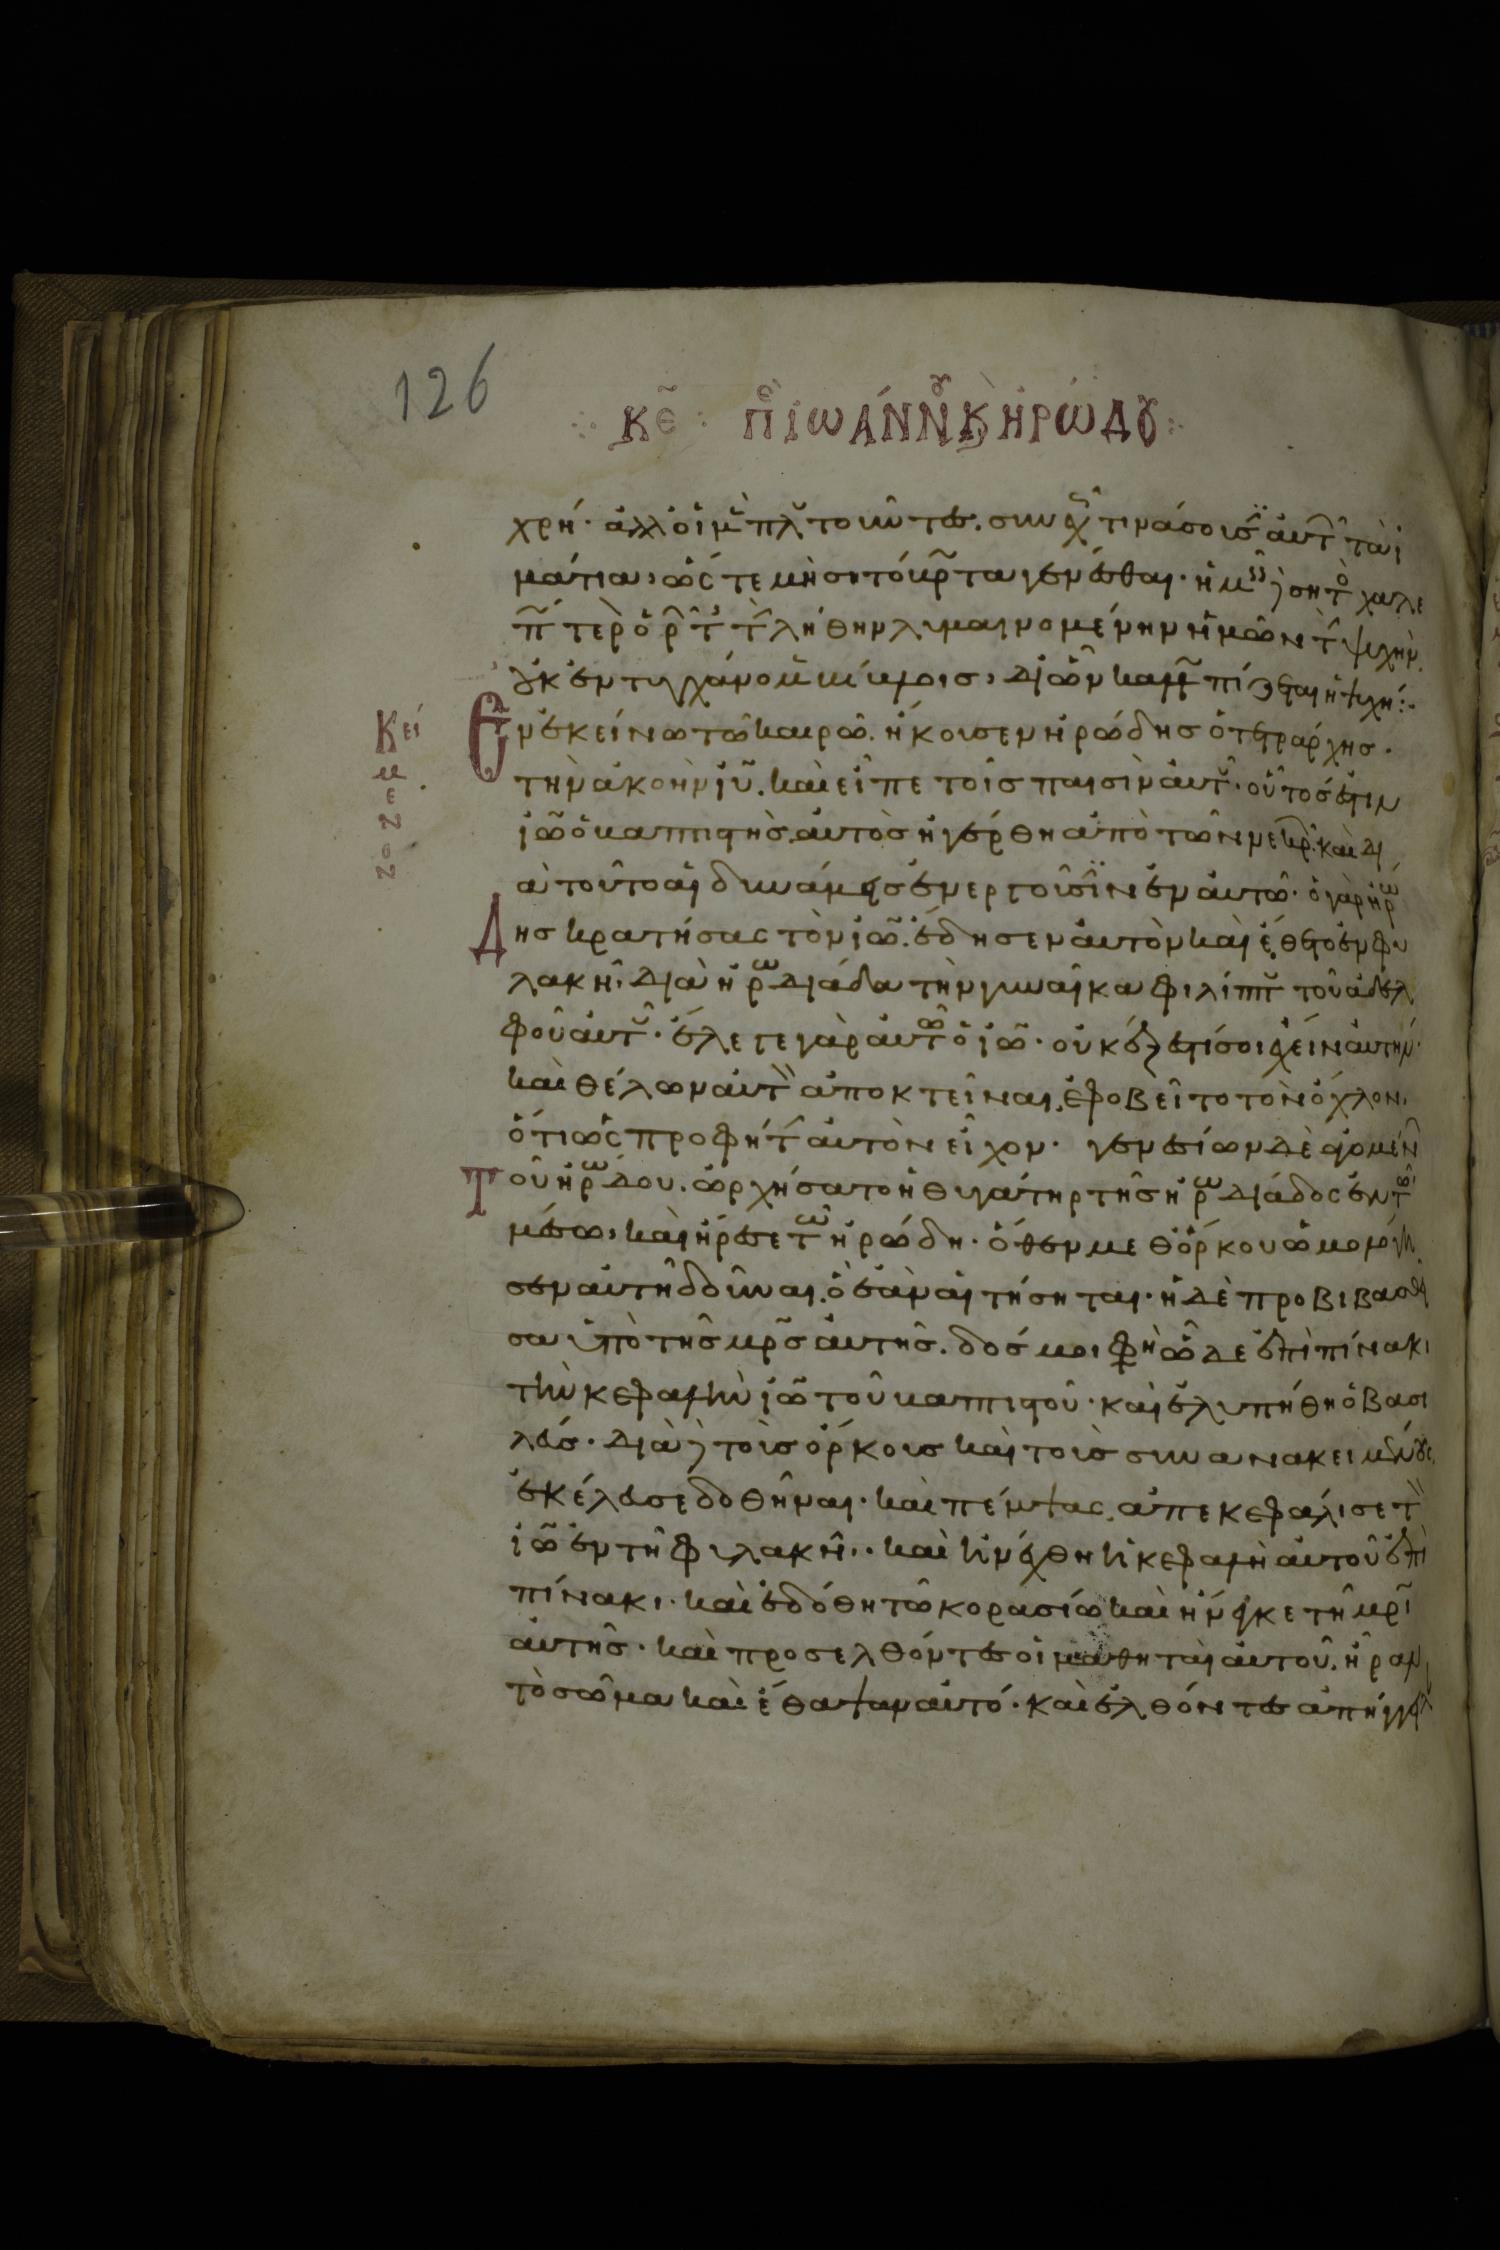 126
κε περὶ ἰωάννου καὶ ἡρώδου
χρή· ἀλλ οἱ μὲν πλουτοῦντες· συνεχῶς τινάσσουσιν αὐτῶν τὰ ἱ
μάτια, ὥς τε μὴ σητόβρωτα γενέσθαι· ἡμεῖς
τὴν λήθην λυμαινομένην ἡμῶν τὴν ψυχήν·
οὐκ ἐντυγχάνομεν βίβλοις, δι ὧν ἡ ψυχή:
κείμενον
Ἐν ἐκείνω τῶ καιρῶ· ἤκουσεν ἡρώδης ὁ τετράρχης·
τὴν ἀκοὴν ἰῦ· καὶ εἶπε τοῖς παισὶν αὐτοῦ· οὗτός ἐστιν
ἰω ὁ βαπτιστὴς· αὐτὸς ἠγέρθη ἀπὸ τῶν νεκρῶν· καὶ δι
ὰ τοῦτο αἱ δυνάμεις ἐνεργοῦσιν ἐν αὐτῶ· ὁ γὰρ ἡρώ
Δης κρατήσας τὸν ἰω· ἔδησεν αὐτὸν καὶ ἔθετο ἐν φυ
λακῆ· διὰ ἡρωδιάδα τὴν γυναῖκα φιλίππου τοῦ ἀδελ
φοῦ αὐτοῦ· ἔλεγε γὰρ αὐτῶ ὁ ἰω· οὐκ ἔξεστί σοι ἔχειν αὐτήν·
καὶ θέλων αὐτὸν ἀποκτεῖναι, ἐφοβεῖτο τὸν ὄχλον,
ὅτι ὡς προφήτην αὐτὸν εἶχον· γενεσίων δὲ ἀγομένων
Τοῦ ἡρώδου· ὠρχήσατο ἡ θυγάτηρ τῆς ἡρωδιάδος ἐν τῶ
μέσω, καὶ ἤρεσε τῶ ἡρώδη· ὅθεν μεθ ὅρκου ὡμολόγη
σεν αὐτῆ δοῦναι· ὃ ἐὰν αἰτήσηται· ἡ δὲ προβιβασθεῖ
σα ὑπὸ τῆς μρς αὐτῆς· δός μοι φησὶν ὧδε ἐπὶ πίνακι
τὴν κεφαλὴν ἰω τοῦ βαπτιστοῦ· καὶ ἐλυπήθη ὁ βασι
λεύς· διὰ δὲ τοὺς ὅρκους καὶ τοὺς συνανακειμένους,
ἐκέλευσε δοθῆναι· καὶ πέμψας· ἀπεκεφάλισε τὸν
ἰω ἐν τῆ φυλακῆ·· καὶ ἠνέχθη ἡ κεφαλὴ αὐτοῦ ἐπὶ
πίνακι· καὶ ἐδόθη τῶ κορασίω καὶ ἤνεγκε τῆ μρι
αὐτῆς· καὶ προσελθόντες οἱ μαθηταὶ αὐτοῦ· ἦραν
τὸ σῶμα καὶ ἔθαψαν αὐτό· καὶ ἐλθόντες ἀπήγγει